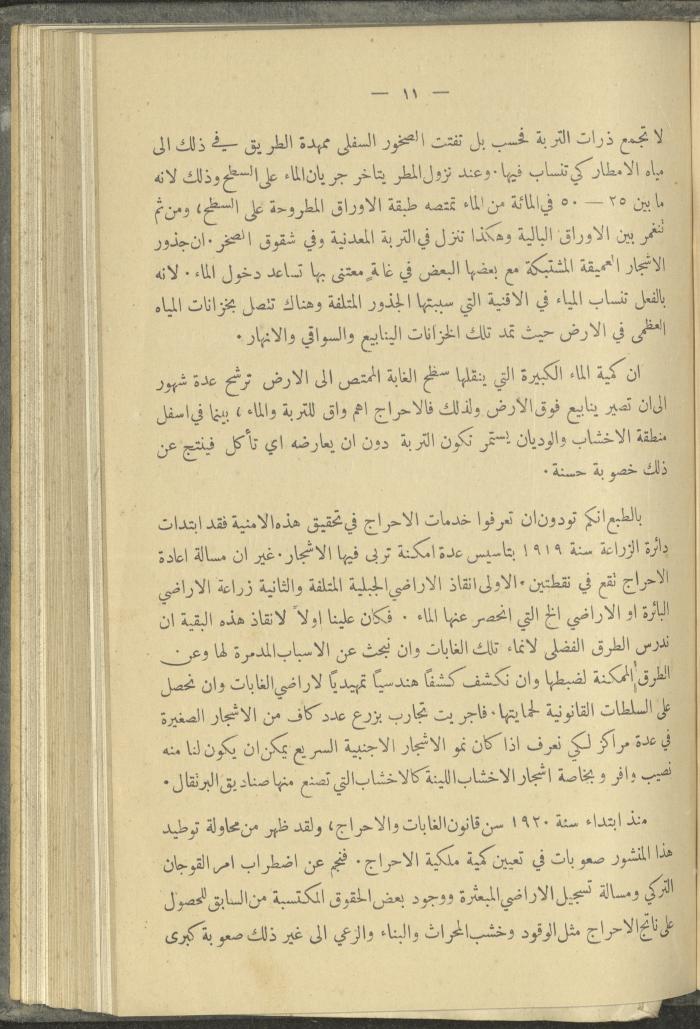 — ١١ —
لا تجمع ذرات التربة فحسب بل تفتت الصخور السفلى ممهدة الطريق في ذلك الى
مياه الامطار كي تنساب فيها. وعند نزول المطر يتاخر جريان الماء على السطح وذلك لانه
ما بين ٢٥ — ٥٠ في المائة من الماء تمتصه طبقة الاوراق المطروحة على السطح، ومن ثم
تنغمر بين الاوراق البالية وهكذا تنزل في التربة المعدنية وفي شقوق الصخر. ان جذور
الاشجار العميقة المشتبكة مع بعضها البعض في غابة معتنى بها تساعد دخول الماء. لانه
بالفعل تنساب المياء في الاقنية التي سببتها الجذور المتلفة وهناك تتصل بخزانات المياه
العظمى في الارض حيث تمد تلك الخزانات الينابيع والسواقي والانهار.
ان كمية الماء الكبيرة التي ينقلها سطح الغابة الممتص الى الارض ترشح عدة شهور
الى ان تصير ينابيع فوق الارض ولذلك فالاحراج اهم واق للتربة والماء، بينما في اسفل
منطقة الاخشاب والوديان يستمر تكون التربة دون ان يعارضه اي تأكل فينتج عن
ذلك خصوبة حسنة.
بالطبع انكم تودون ان تعرفوا خدمات الاحراج في تحقيق هذه الامنية فقد ابتدات
دائرة الزراعة سنة ١٩١٩ بتاسيس عدة امكنة تربى فيها الاشجار. غير ان مسالة اعادة
الاحراج تقع في نقطتين. الاولى انقاذ الاراضي الجبلية المتلفة والثانية زراعة الاراضي
البائرة او الاراضي الخ التي انحصر عنها الماء. فكان علينا اولاً لانقاذ هذه البقية ان
ندرس الطرق الفضلى لانماء تلك الغابات وان نبحث عن الاسباب المدمرة لها وعن
الطرق الممكنة لضبطها وان نكشف كشفاً هندسياً تمهيدياً لاراضي الغابات وان نحصل
على السلطات القانونية لحمايتها. فاجريت تجارب بزرع عدد كاف من الاشجار الصغيرة
في عدة مراكز لكي نعرف اذا كان نمو الاشجار الاجنبية السريع يمكن ان يكون لنا منه
نصيب وافر وبخاصة اشجار الاخشاب اللينة كالاخشاب التي تصنع منها صناديق البرتقال.
منذ ابتداء سنة ١٩٢٠ سن قانون الغابات والاحراج، ولقد ظهر من محاولة توطيد
هذا المنشور صعوبات في تعيين كمية ملكية الاحراج. فنجم عن اضطراب امر القوجان
التركي ومسالة تسجيل الاراضي المبعثرة ووجود بعض الحقوق المكتسبة من السابق للحصول
على ناتج الاحراج مثل الوقود وخشب المحراث والبناء والرعي الى غير ذلك صعوبة كبرى